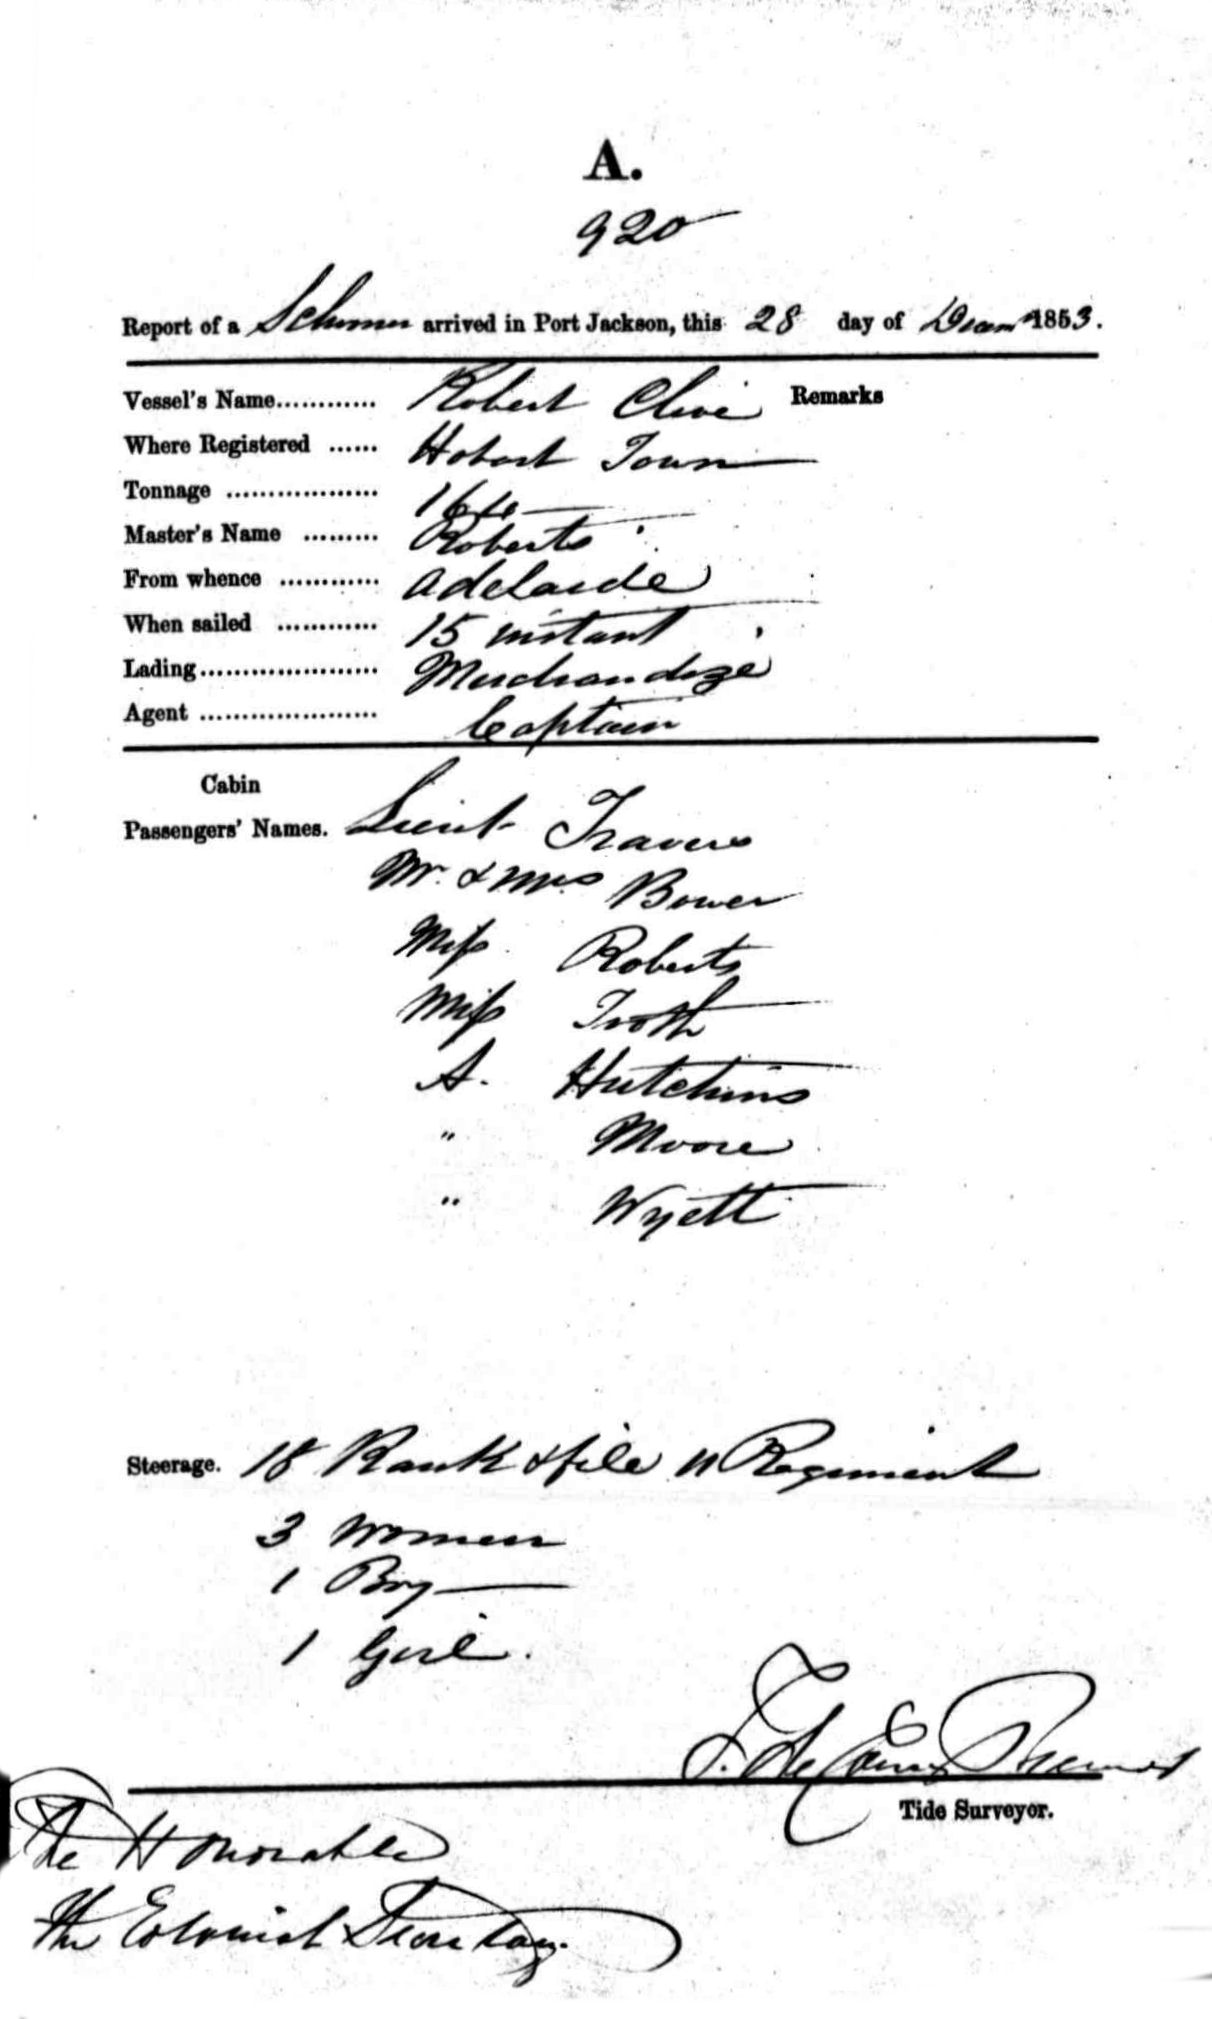 A.
920
Report of a Schooner arrived in Port Jackson, this 28 day of Decemr 1853.
Vessel's Name............ Robert Clive Remarks
Where Registered ...... Hobart Town
Tonnage .................. 164
Master's Name ......... Roberts
From whence ............ Adelaide
When sailed ............ 15 instant
Lading..................... Merchandize
Agent ..................... Captain
Cabin
Passengers' Names. Lieut Travers
Mr. & Mrs Bower
Miss Roberts
Miss Troth
A. Hutchins
" Moore
" Wyett
Steerage. 18 Rank & file 11 Regiment
3 Women
1 Boy
1 Girl.
Tide Surveyor.
The Honorable
The Colonial Secretary.